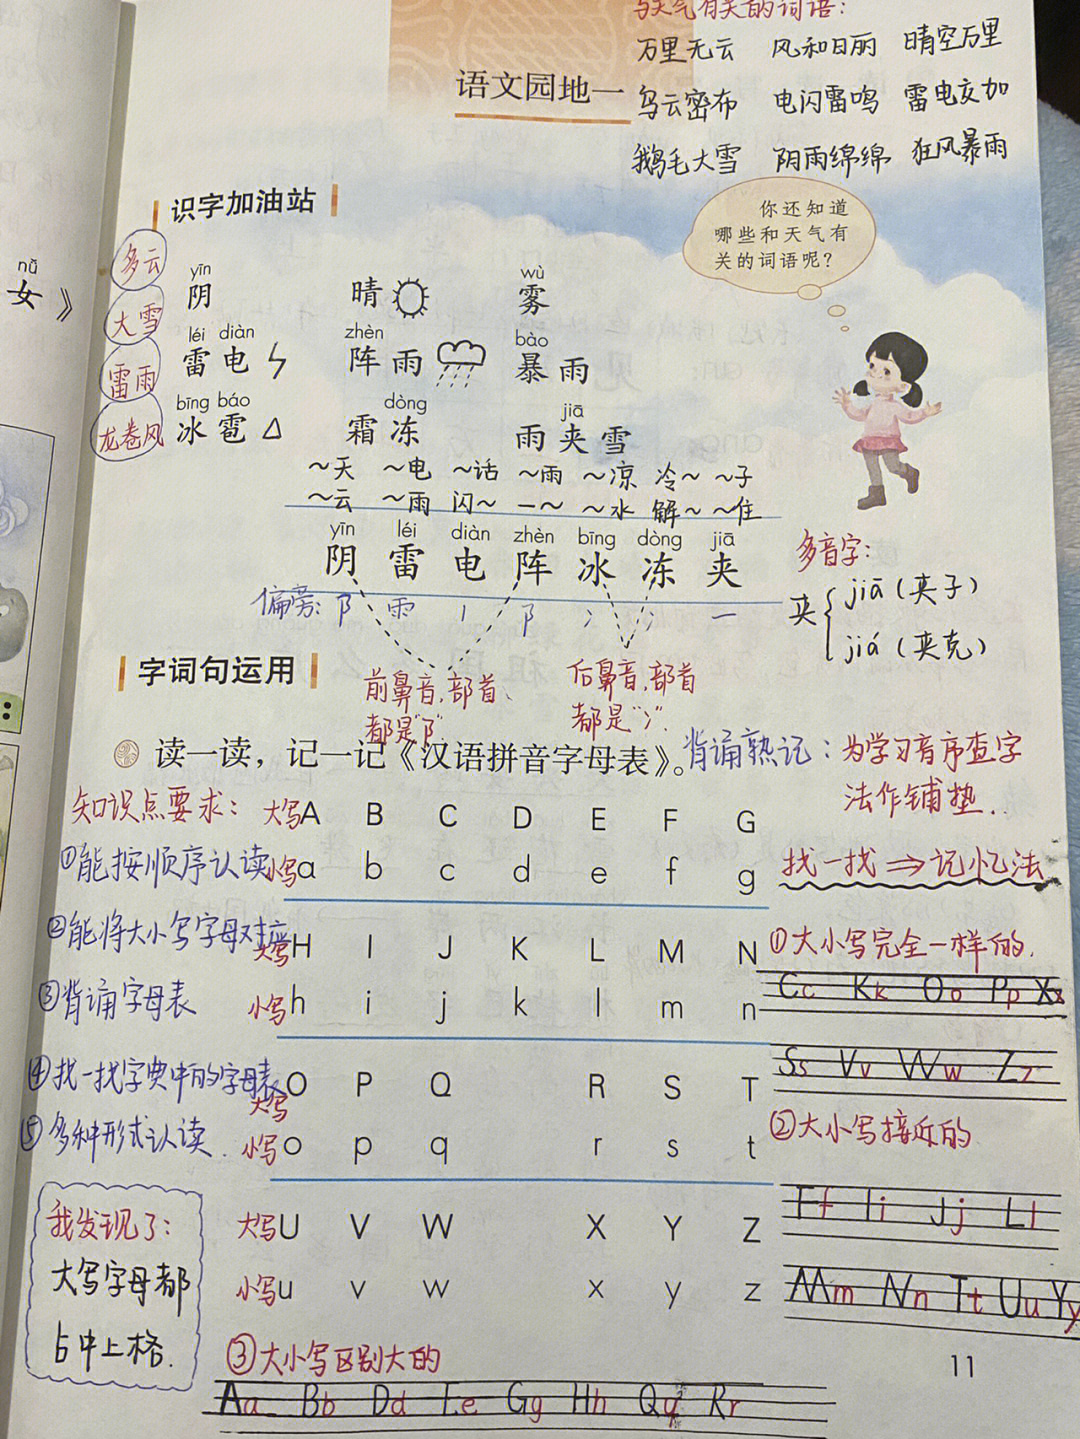 与天气有关的词语：
万里无云 风和日丽 晴空万里
语文园地一
乌云密布 电闪雷鸣 雷电交加
鹅毛大雪 阴雨绵绵 狂风暴雨
识字加油站
你还知道
哪些和天气有
关的词语呢？
nǚ
女》
多云
大雪
雷雨
龙卷风
yīn wù
阴 晴 雾
léi diàn zhèn bào
雷电 阵雨 暴雨
bīng báo dòng jiā
冰雹 霜冻 雨夹雪
～天 ～电 ～话 ～雨 ～凉 冷～ ～子
～云 ～雨 闪～ 一～ ～水 解～ ～住
yīn léi diàn zhèn bīng dòng jiā
阴 雷 电 阵 冰 冻 夹
偏旁：阝 雨 丨 阝 冫 冫 一
多音字：
夹 jiā（夹子）
jiá（夹克）
字词句运用
前鼻音，部首
都是“阝”
后鼻音，部首
都是“冫”
读一读，记一记《汉语拼音字母表》。
背诵熟记：为学习音序查字
法作铺垫．
知识点要求：
①能按顺序认读
②能将大小写字母对应
③背诵字母表
④找一找字典中的字母表
⑤多种形式认读．
大写 A B C D E F G
小写 a b c d e f g
大写 H I J K L M N
小写 h i j k l m n
大写 O P Q R S T
小写 o p q r s t
大写 U V W X Y Z
小写 u v w x y z
找一找⇒记忆法
①大小写完全一样的．
Cc Kk Oo Pp Xx
Ss Vv Ww Zz
②大小写接近的
Ff Ii Jj Ll
Mm Nn Tt Uu Yy
我发现了：
大写字母都
占中上格．
③大小写区别大的
Aa Bb Dd Ee Gg Hh Qq Rr
11